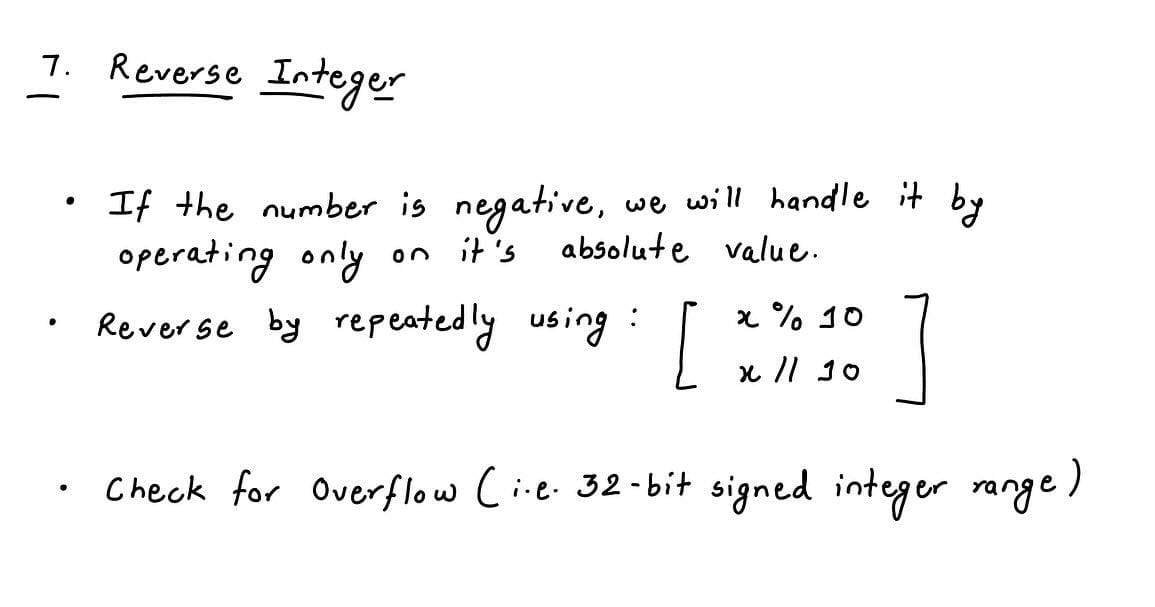 7. Reverse Integer
• If the number is negative, we will handle it by
operating only on it's absolute value.
• Reverse by repeatedly using : [ x % 10
x // 10 ]
• Check for Overflow ( i.e. 32-bit signed integer range )